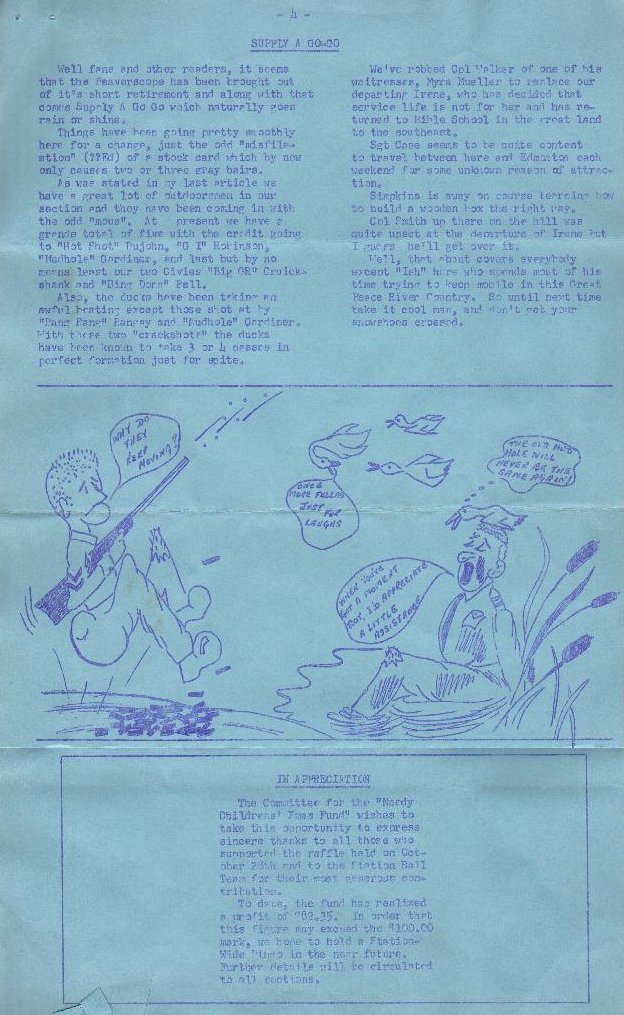 - 4 -
SUPPLY A GO-GO
Well fans and other readers, it seems
that the Beaverscope has been brought out
of it's short retirement and along with that
comes Supply A Go Go which naturally goes
rain or shine.
Things have been going pretty smoothly
here for a change, just the odd "misfile-
ation" (??Ed) of a stock card which by now
only causes two or three gray hairs.
As was stated in my last article we
have a great lot of outdoorsmen in our
section and they have been coming in with
the odd "moose". At present we have a
grande total of five with the credit going
to "Hot Shot" Dujohn, "G I" Robinson,
"Mudhole" Gardiner, and last but by no
means least our two Civies "Big GR" Cruick-
shank and "Ding Dong" Bell.
Also, the ducks have been taking an
awful beating except those shot at by
"Bang Bang" Bangay and "Mudhole" Gardiner.
With these two "crackshots" the ducks
have been known to take 3 or 4 passes in
perfect formation just for spite.
We've robbed Cpl Walker of one of his
waitresses, Myra Mueller to replace our
departing Irene, who has decided that
service life is not for her and has re-
turned to Bible School in the great land
to the southeast.
Sgt Case seems to be quite content
to travel between here and Edmonton each
weekend for some unknown reason of attrac-
tion.
Simpkins is away on course learning how
to build a wooden box the right way.
Cpl Smith up there on the hill was
quite upset at the departure of Irene but
I guess he'll get over it.
Well, that about covers everybody
except "Ish" here who spends most of his
time trying to keep mobile in this Great
Peace River Country. So until next time
take it cool man, and don't get your
snowshoes crossed.
WHY DO
THEY
KEEP
MOVING?
ONCE
MORE FELLAS
JUST FOR
LAUGHS
THE OLD MUD
HOLE WILL
NEVER BE THE
SAME AGAIN!
WHEN YOU'VE
GOT A MOMENT
ROY, I'D APPRECIATE
A LITTLE
ASSISTANCE
IN APPRECIATION
The Committee for the "Needy
Childrens' Xmas Fund" wishes to
take this opportunity to express
sincere thanks to all those who
supported the raffle held on Oct-
ober 28th and to the Station Ball
Team for their most generous con-
tribution.
To date, the fund has realized
a profit of $82.35. In order that
this figure may exceed the $100.00
mark, we hope to hold a Station-
Wide Bingo in the near future.
Further details will be circulated
to all sections.